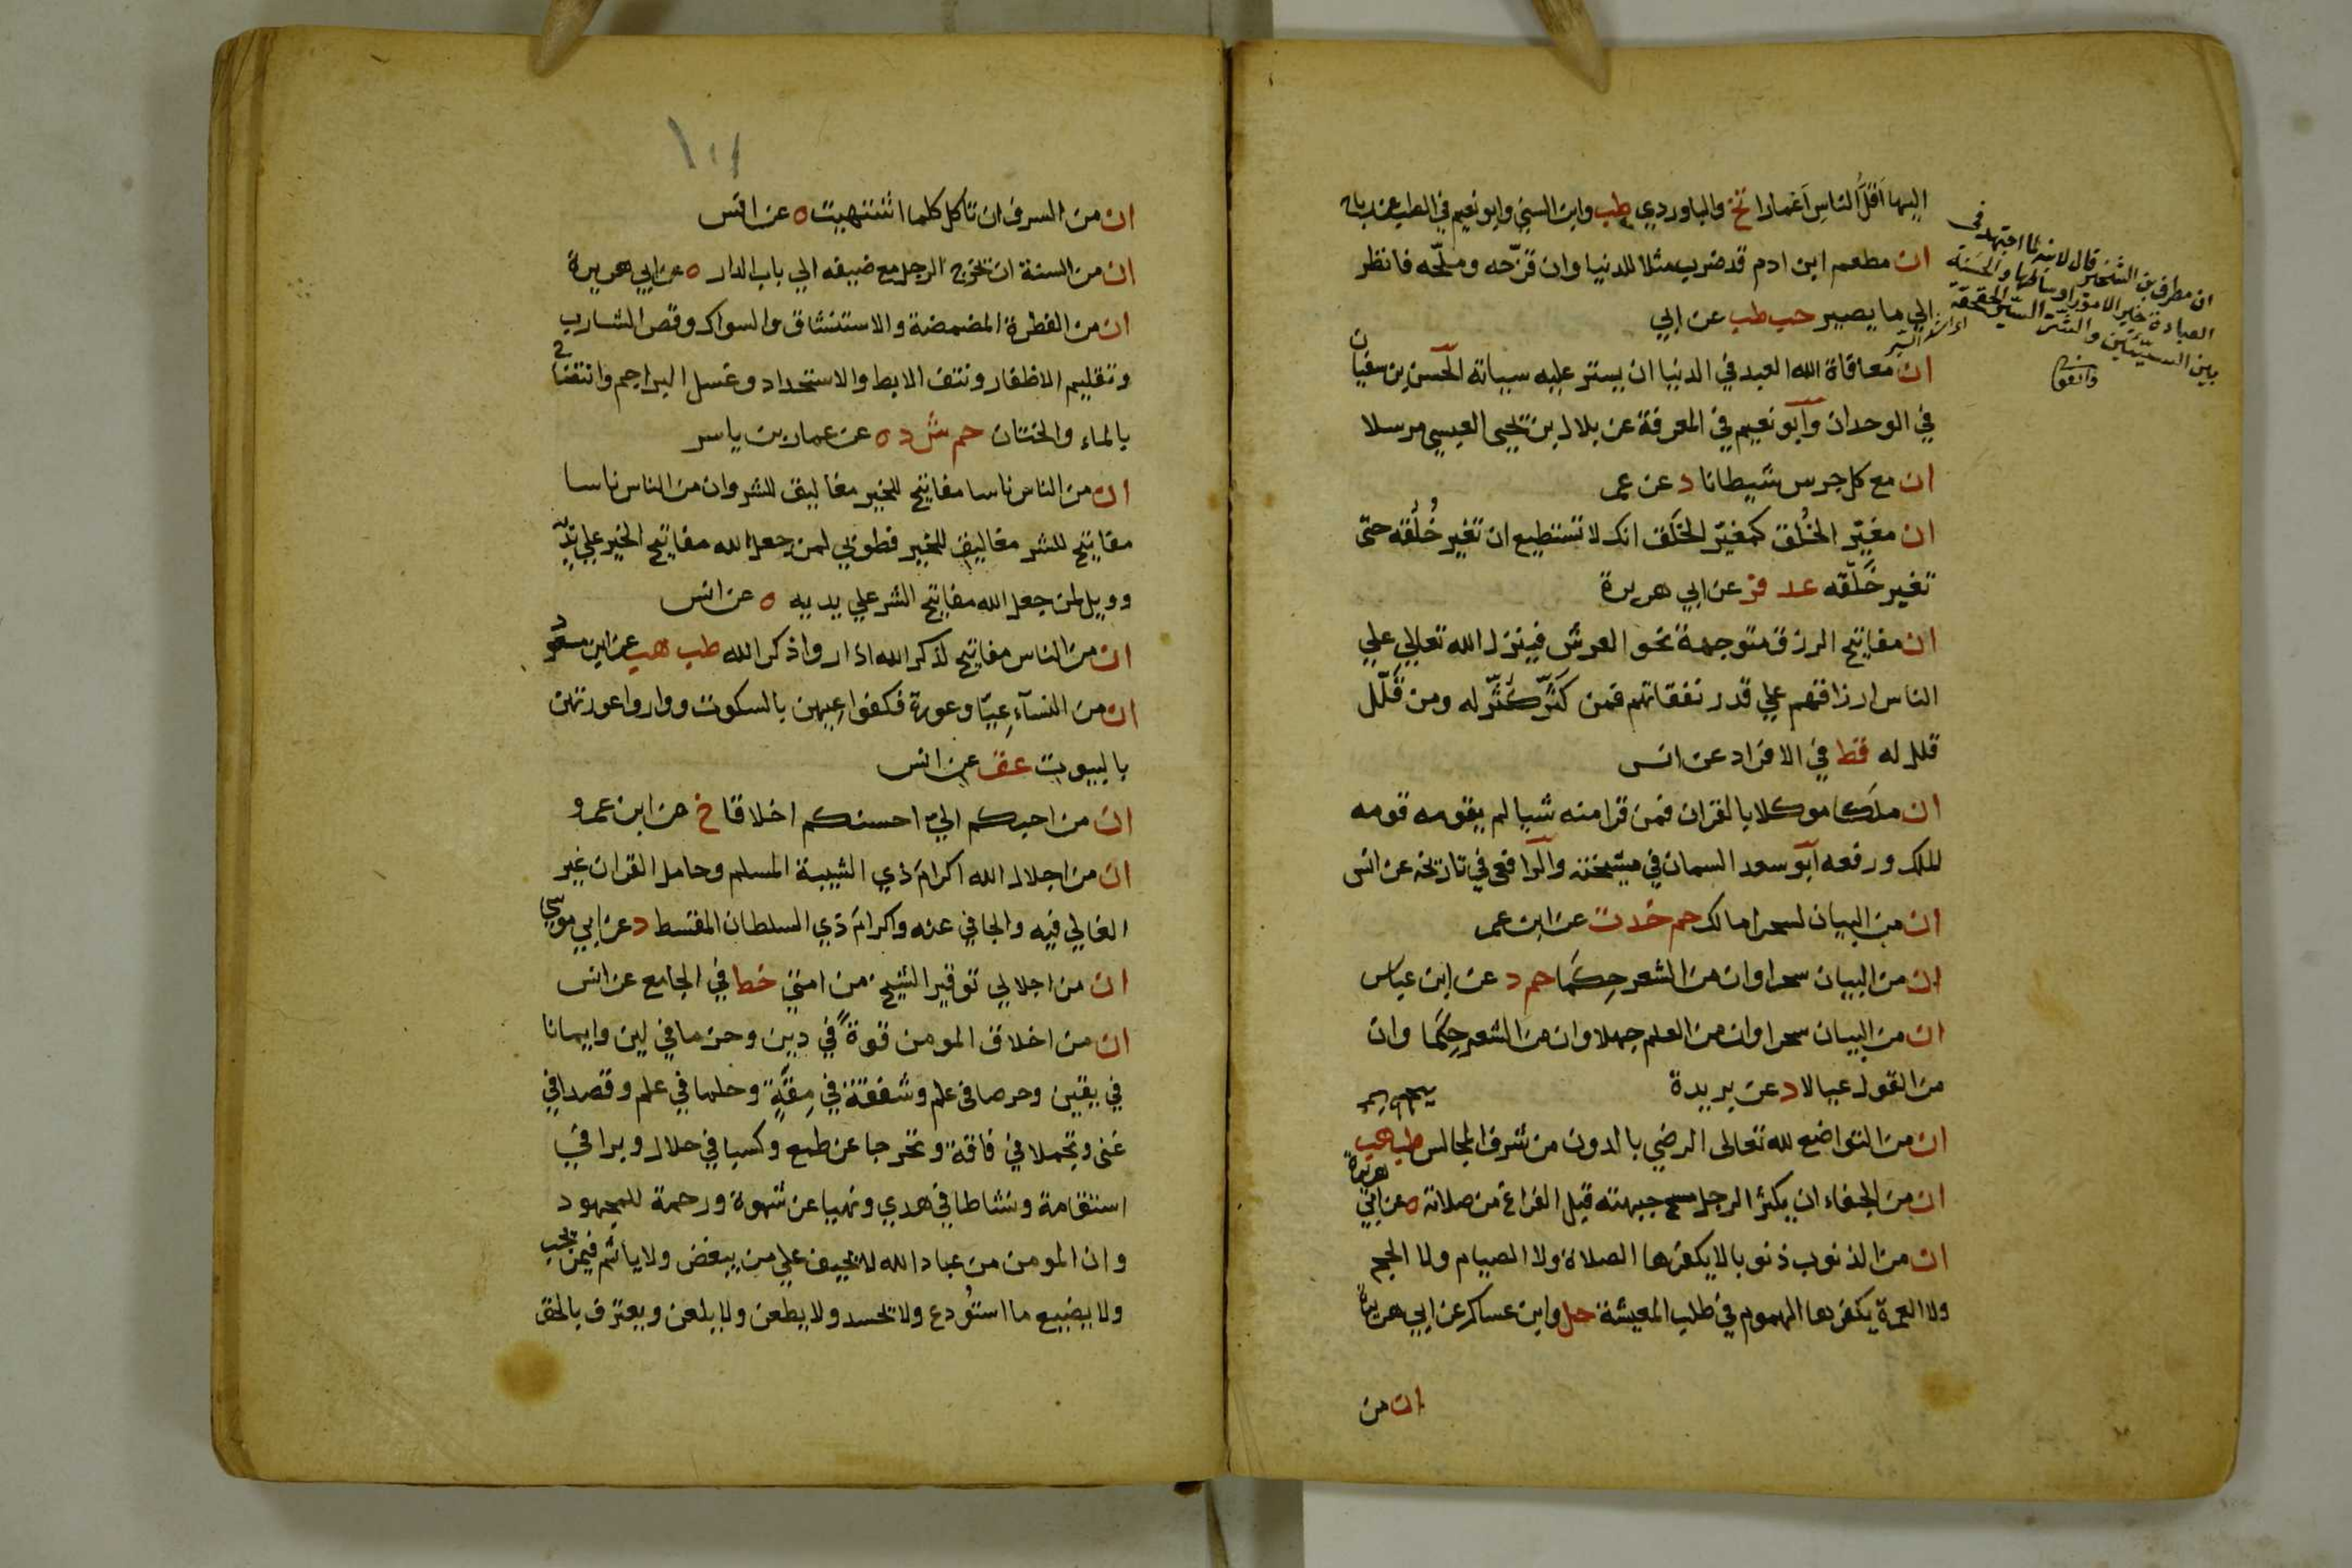 اليها اقل الناس اعمارا تخ والباوردي طب وابن السني وابو نعيم في الطب عن رباح
ان مطعم ابن ادم قد ضرب مثلا للدنيا وان قزّحه وملّحه فانظر
الى ما يصير حب طب عن ابي
ان معافاة الله العبد في الدنيا ان يستر عليه سياته الحسن بن سفيان
في الوحدان وابو نعيم في المعرفة عن بلال بن يحيى العبسي مرسلا
ان مع كل جرس شيطانا د عن عمر
ان مغيّر الخُلق كمغيّر الخَلق انك لا تستطيع ان تغير خُلُقه حتى
تغير خَلْقه عد فر عن ابي هريرة
ان مفاتيح الرزق متوجهة نحو العرش فينزل الله تعالى علي
الناس ارزاقهم علي قدر نفقاتهم فمن كَثّر كُثّر له ومن قَلّل
قلل له قط في الافراد عن انس
ان ملكا موكلا بالقران فمن قرا منه شيا لم يقومه قومه
الملك ورفعه ابو سعد السمان في مشيخته والرافعي في تاريخه عن انس
ان من البيان لسحرا مالك حم خ د ت عن ابن عمر
ان من البيان سحرا وان من الشعر حِكَما حم د عن ابن عباس
ان من البيان سحرا وان من العلم جهلا وان من الشعر حِكَما وان
من القول عيالا د عن بريدة
ان من التواضع لله تعالى الرضي بالدون من شرف المجالس طب هب
ان من الجفاء ان يكثر الرجل مسح جبهته قبل الفراغ من صلاته ه عن ابي هريرة
ان من الذنوب ذنوبا لا يكفرها الصلاة ولا الصيام ولا الحج
ولا العمرة يكفرها الهموم في طلب المعيشة حل وابن عساكر عن ابي هريرة
ان من
ان مطرف بن الشخير قال لابنه لما اجتهد في
العبادة خير الامور اوساطها والحسنة
بين السيئتين وشر السير الحقحقة
ان من السرف ان تاكل كلما اشتهيت ه عن انس
ان من السنة ان يخرج الرجل مع ضيفه الي باب الدار ه عن ابي هريرة
ان من الفطرة المضمضة والاستنشاق والسواك وقص الشارب
وتقليم الاظفار ونتف الابط والاستحداد وغسل البراجم وانتضاح
بالماء والختان حم ش د ه عن عمار بن ياسر
ان من الناس ناسا مفاتيح للخير مغاليق للشر وان من الناس ناسا
مفاتيح للشر مغاليق للخير فطوبي لمن جعل الله مفاتيح الخير علي يديه
وويل لمن جعل الله مفاتيح الشر علي يديه ه عن انس
ان من الناس مفاتيح لذكر الله اذا رؤا ذكر الله طب هب عن ابن مسعود
ان من النسآء عِيّا وعورة فكفوا عيهن بالسكوت وواروا عورتهن
بالبيوت عق عن انس
ان من احبكم اليّ احسنكم اخلاقا خ عن ابن عمرو
ان من اجلال الله اكرام ذي الشيبة المسلم وحامل القران غير
الغالي فيه والجافي عنه واكرام ذي السلطان المقسط د عن ابي موسي
ان من اجلالي توقير الشيخ من امتي خط في الجامع عن انس
ان من اخلاق المومن قوةً في دين وحزما في لين وايمانا
في يقين وحرصا في علم وشفقة في مِقَةٍ وحلما في علم وقصدا في
غنى وتجملا في فاقة وتحرجا عن طمع وكسبا في حلال وبرا في
استقامة ونشاطا في هدي ونهيا عن شهوة ورحمة للمجهود
وان المومن من عباد الله لا يحيف علي من يبغض ولا ياثم فيمن يحب
ولا يضيع ما استُودع ولا يحسد ولا يطعن ولا يلعن ويعترف بالحق